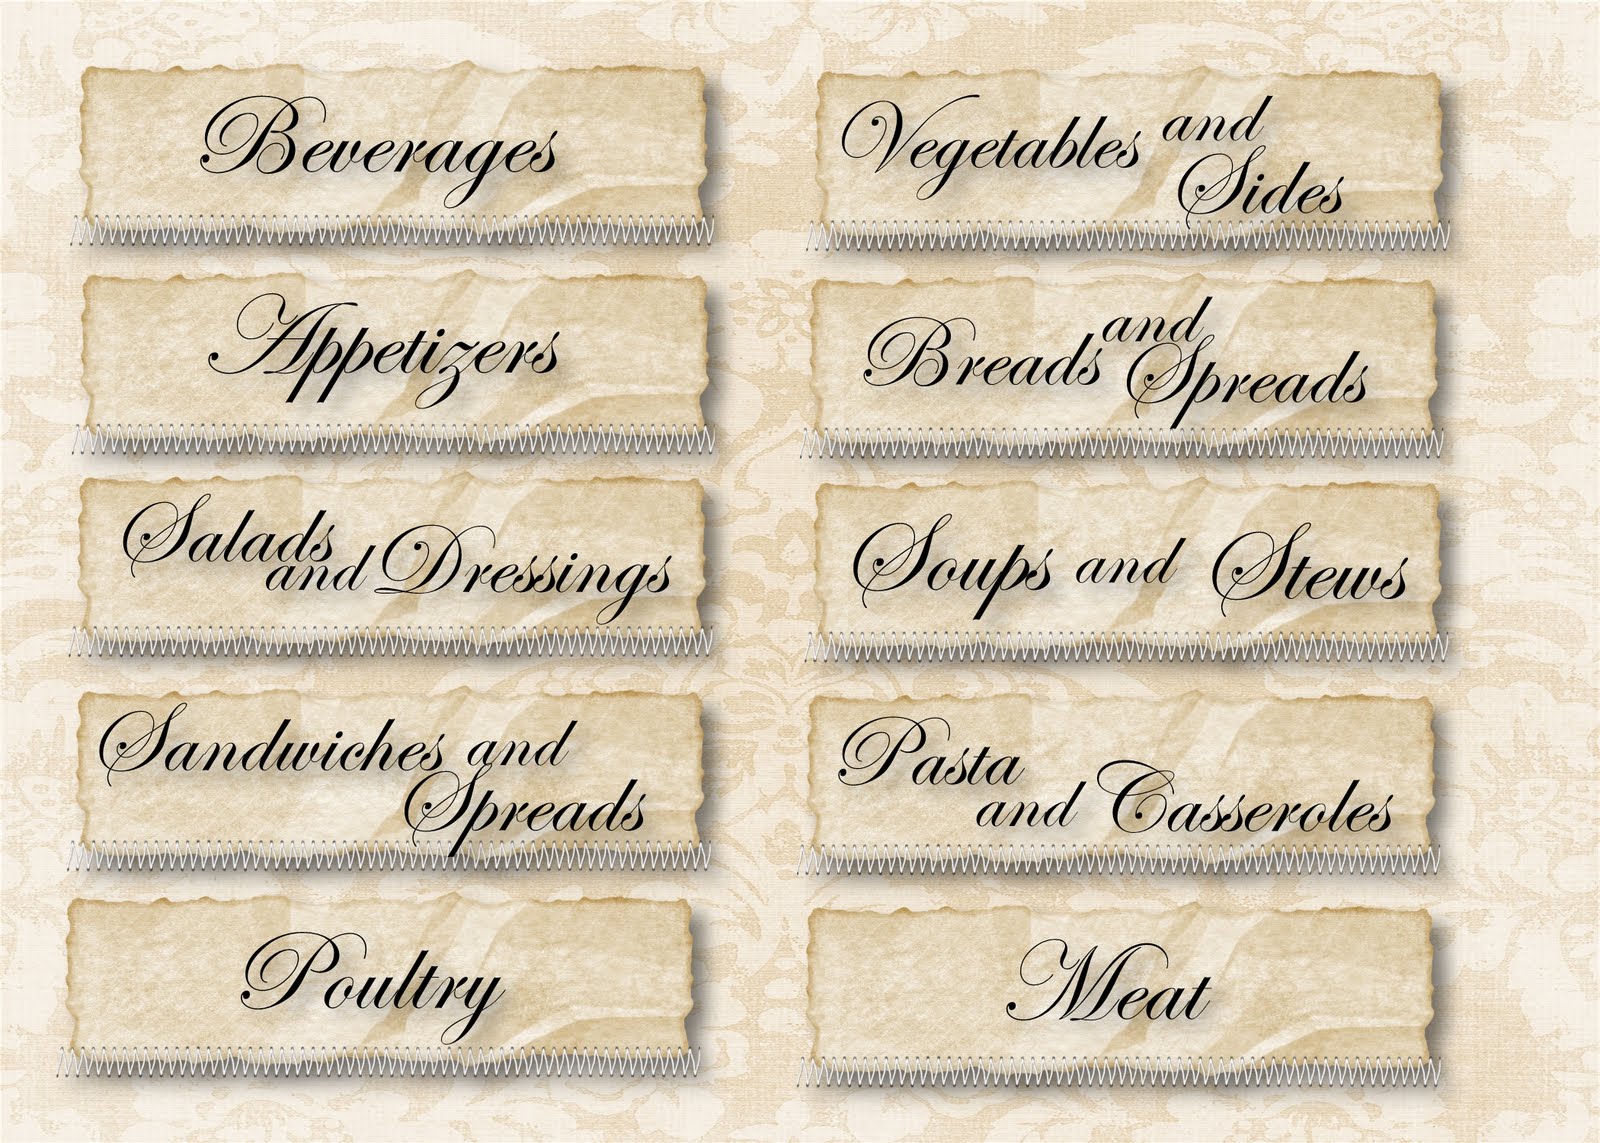 Beverages
Appetizers
Salads
and Dressings
Sandwiches and
Spreads
Poultry
Vegetables and
Sides
Breads and
Spreads
Soups and Stews
Pasta
and Casseroles
Meat